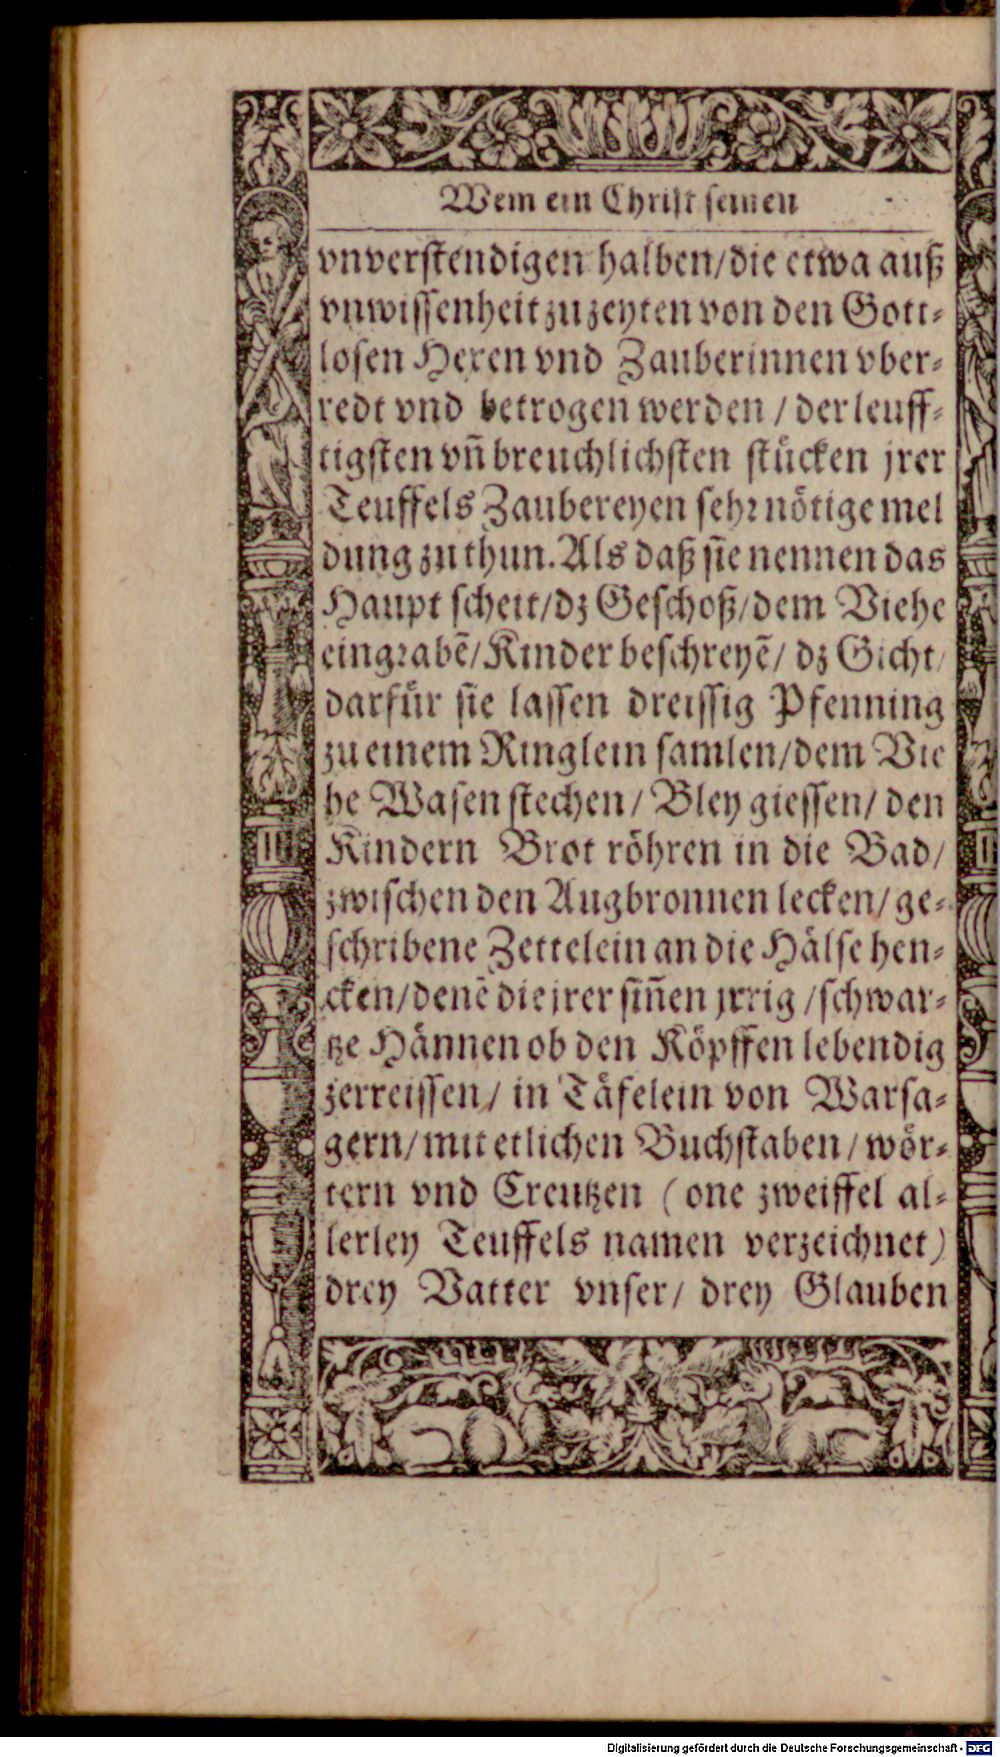 Wem ein Christ seinen
vnverstendigen halben/die etwa auß
vnwissenheit zu zeyten von den Gott⸗
losen Hexen vnd Zauberinnen vber⸗
redt vnd betrogen werden / der leuff⸗
tigsten vñ breuchlichsten stücken jrer
Teuffels Zaubereyen sehr nötige mel
dung zu thun. Als daß sie nennen das
Haupt scheit/dz Geschoß/dem Viehe
eingrabẽ/Kinder beschreyẽ/ dz Gicht/
darfür sie lassen dreissig Pfenning
zu einem Ringlein samlen/dem Vie
he Wasen stechen/ Bley giessen/ den
Kindern Brot röhren in die Bad/
zwischen den Augbronnen lecken/ ge⸗
schribene Zettelein an die Hälse hen⸗
cken/denẽ die jrer siñen jrrig /schwar⸗
tze Hännen ob den Köpffen lebendig
zerreissen/ in Täfelein von Warsa⸗
gern/mit etlichen Buchstaben/ wör⸗
tern vnd Creutzen (one zweiffel al⸗
lerley Teuffels namen verzeichnet)
drey Vatter vnser/ drey Glauben
Digitalisierung gefördert durch die Deutsche Forschungsgemeinschaft - DFG